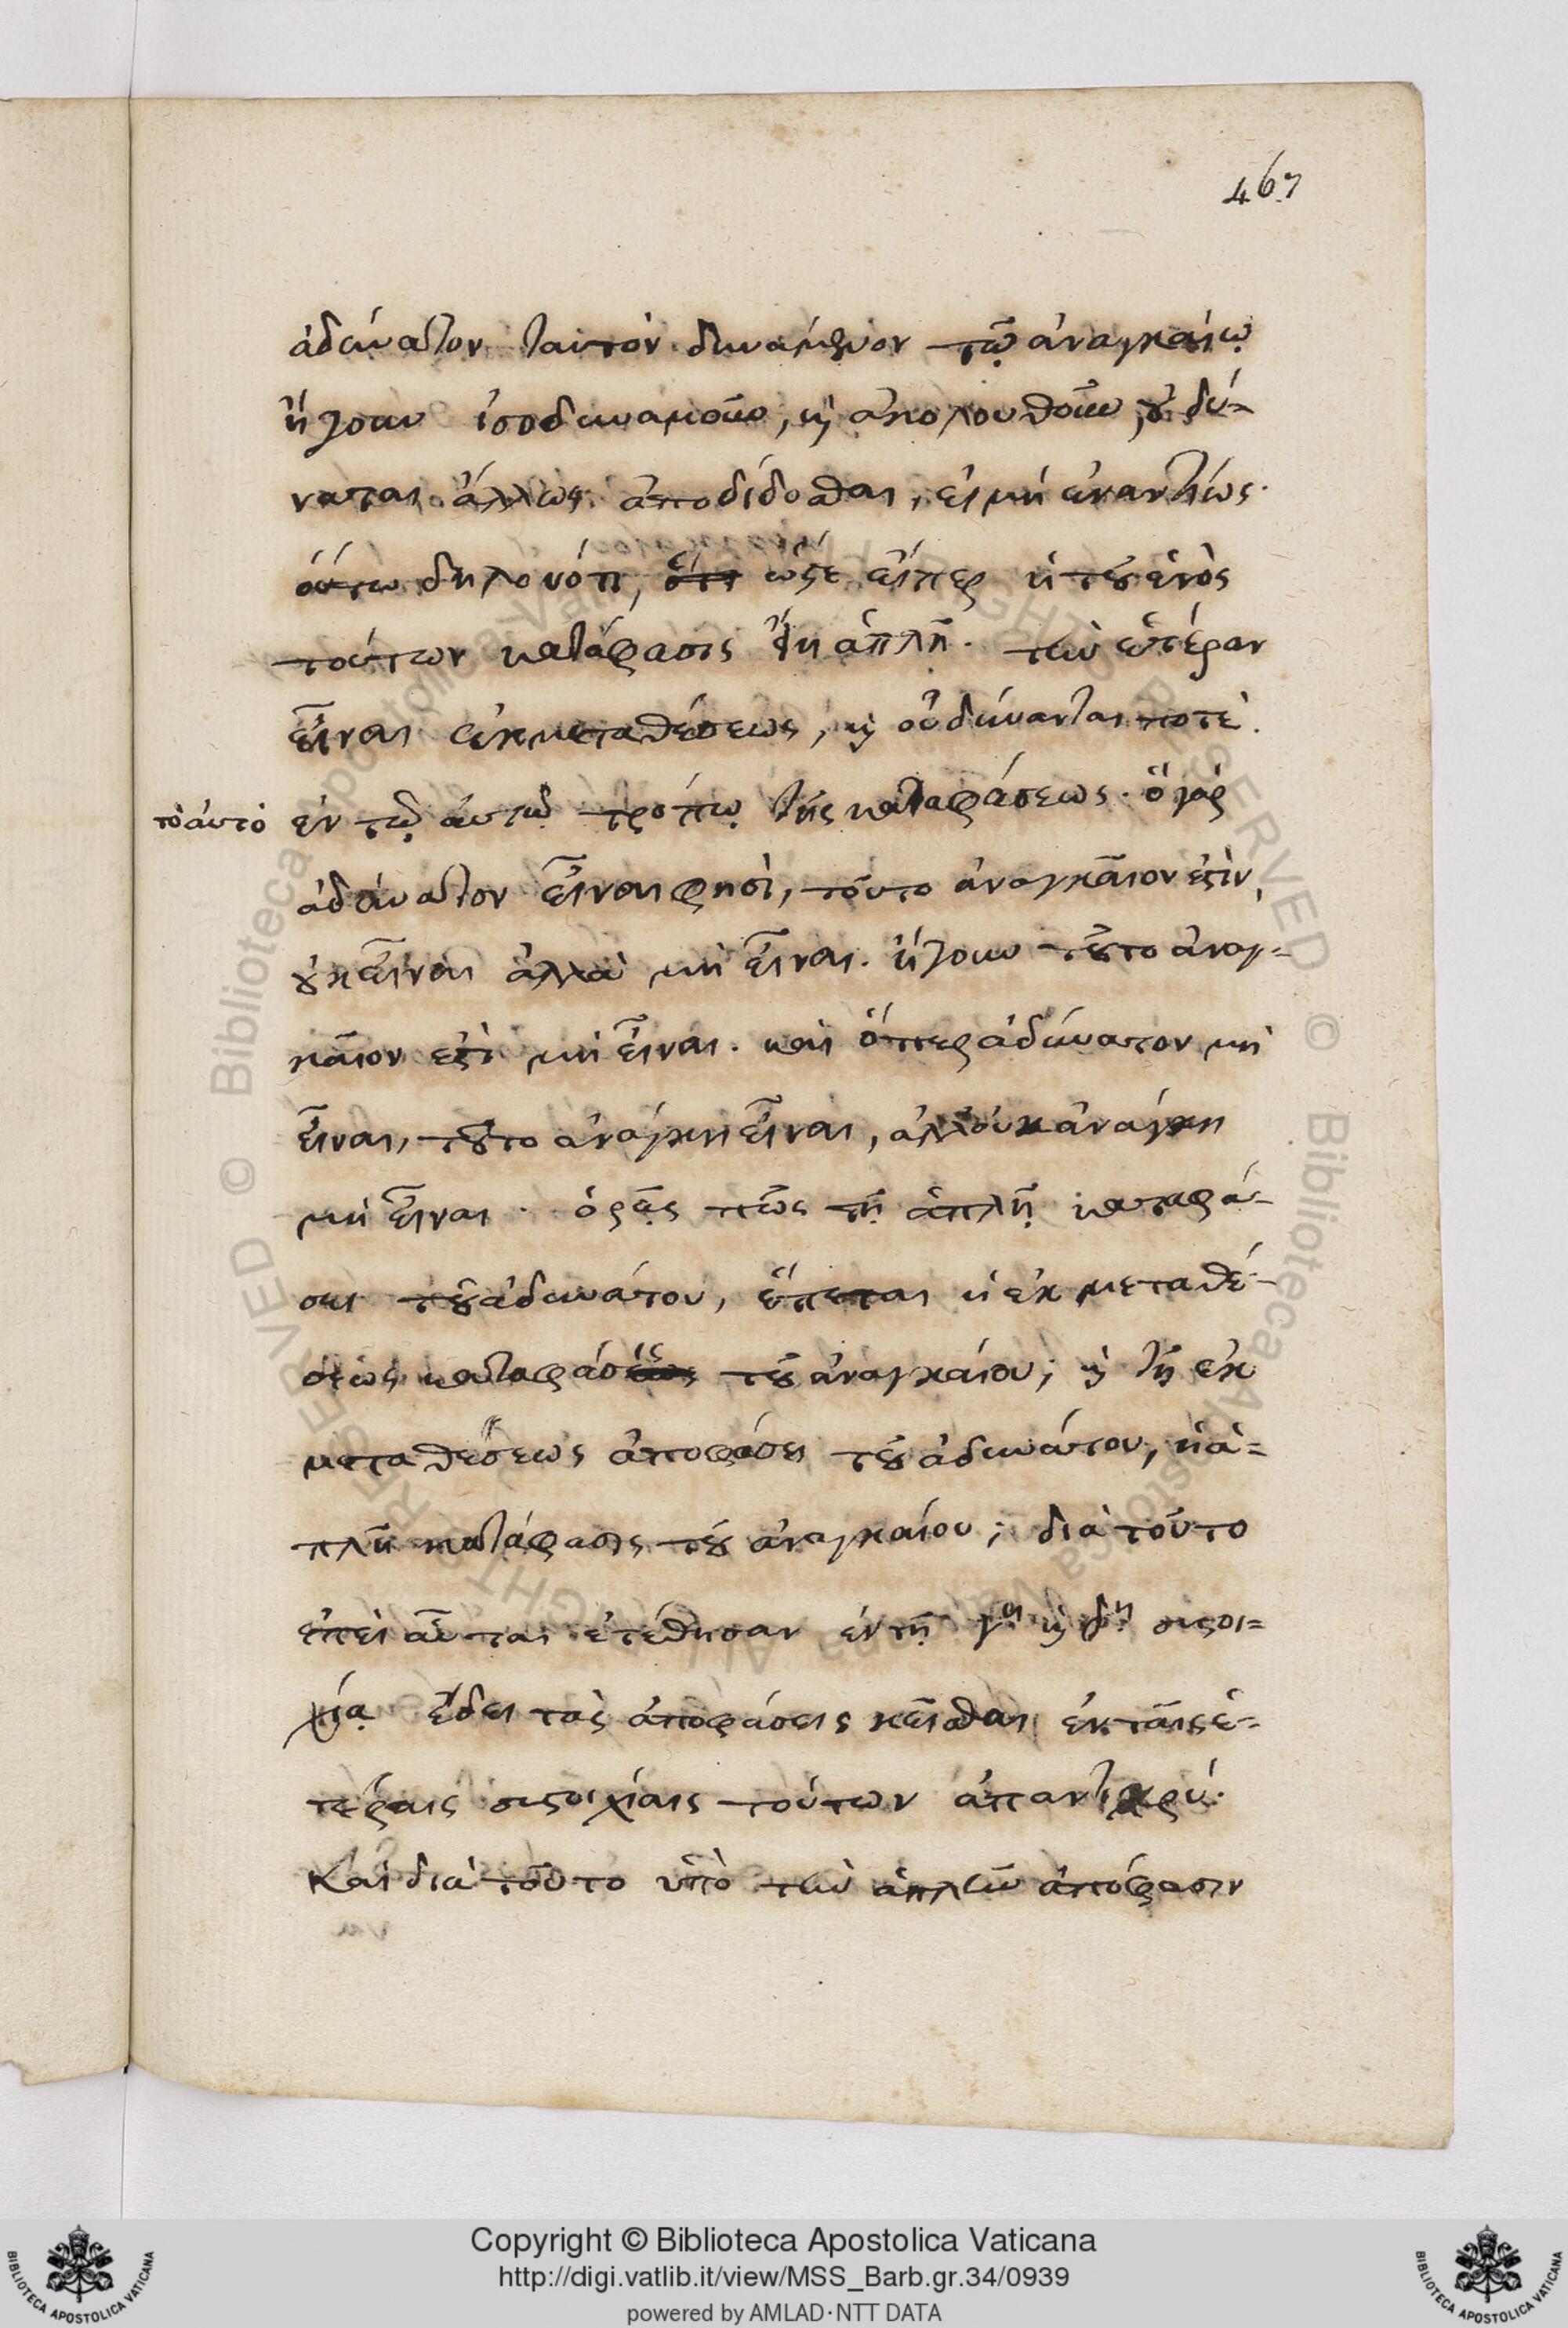 467
ἀδύνατον ταυτὸν δυνάμενον τῷ ἀναγκαίῳ
ἤγουν ἰσοδυναμοῦν, κὶ ἀκολουθοῦν, οὐ δύ-
ναται ἄλλως ἀποδίδοσθαι, εἰ μὴ ἐναντίως.
οὕτω δηλονότι, ὅτι ὥστε εἴπερ ἡ τοῦ ἑνὸς
τούτων κατάφασις ἢ ἁπλῆ. τὴν ἑτέραν
εἶναι ἐκ μεταθέσεως, κὶ οὐ δύνανται ποτὲ.
τὸ αὐτὸ
ἐν τῷ αὐτῷ τρόπῳ τῆς καταφάσεως. ὃ γὰρ
ἀδύνατον εἶναι φησὶ, τοῦτο ἀναγκαῖον ἐστὶν,
οὐκ εἶναι ἀλλὰ μὴ εἶναι. ἤγουν τοῦτο ἀναγ-
καῖον ἐστὶ μὴ εἶναι. καὶ ὅπερ ἀδύνατον μὴ
εἶναι, τοῦτο ἀνάγκη εἶναι, ἀλλ' οὐκ ἀνάγκη
μὴ εἶναι. ὁρᾷς πῶς τῇ ἁπλῇ καταφά-
σει τοῦ ἀδυνάτου, ἕπεται ἡ ἐκ μεταθέ-
σεως κατάφασις τοῦ ἀναγκαίου; κὶ τῇ ἐκ
μεταθέσεως ἀποφάσει τοῦ ἀδυνάτου, ἡ ἁ-
πλῆ κατάφασις τοῦ ἀναγκαίου; διὰ τοῦτο
ἐπεὶ αὗται ἐτέθησαν ἐν τῇ γη κὶ δη συστοι-
χίᾳ ἔδει τὰς ἀποφάσεις κεῖσθαι ἐν ταῖς ἑ-
τέραις συστοιχίαις τούτων ἀπαντικρύ.
Καὶ διὰ τοῦτο ὑπὸ τὴν ἁπλῆν ἀπόφασιν
Copyright © Biblioteca Apostolica Vaticana
http://digi.vatlib.it/view/MSS_Barb.gr.34/0939
powered by AMLAD·NTT DATA